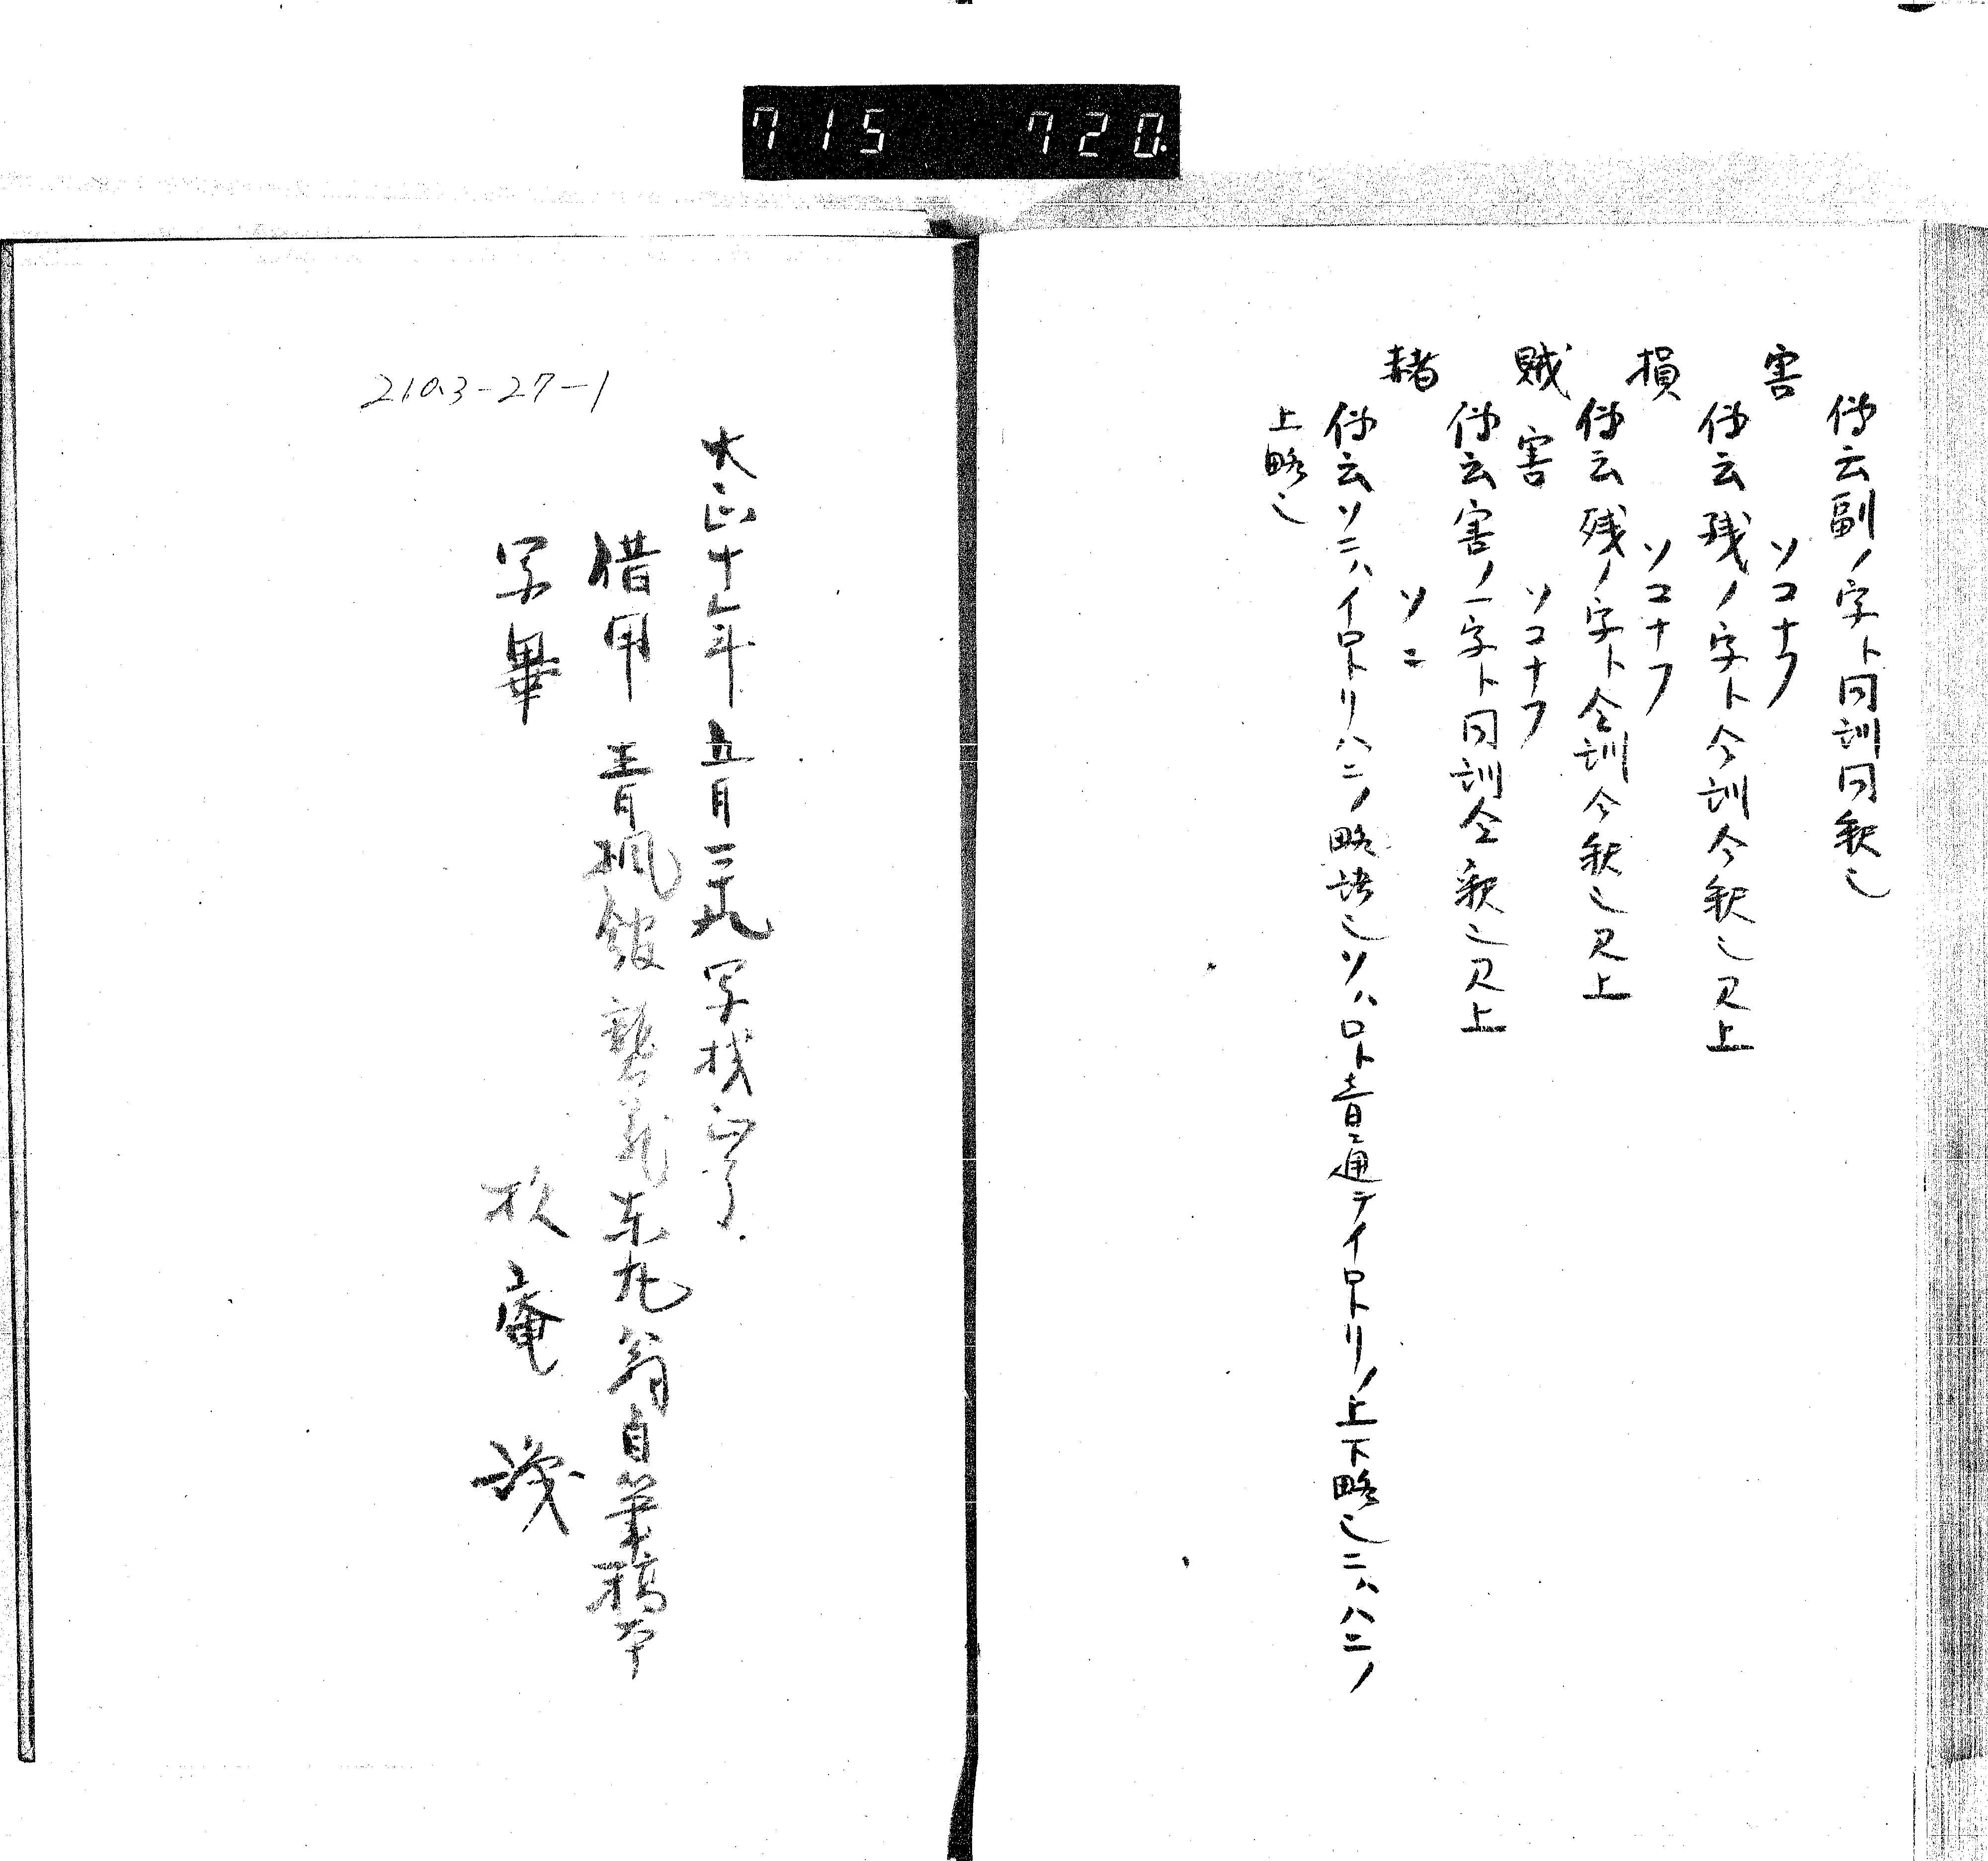 715 720
傳云副ノ字ト同訓同釈也
害 ソコナフ
傳云残ノ字ト仝訓仝釈也又上
損 ソコナフ
傳云残ノ字ト仝訓仝釈也又上
賊害 ソコナフ
傳云害ノ一字ト同訓仝釈也又上
赭 ソニ
傳云ソニハイロトリハニノ略語也ソハロト音通テイロトリノ上下略也ニハハニノ
上略也
大正十年五月 写校了
借用 青 館 義東丸翁自筆稿本
写畢 庵
210.3-27-1